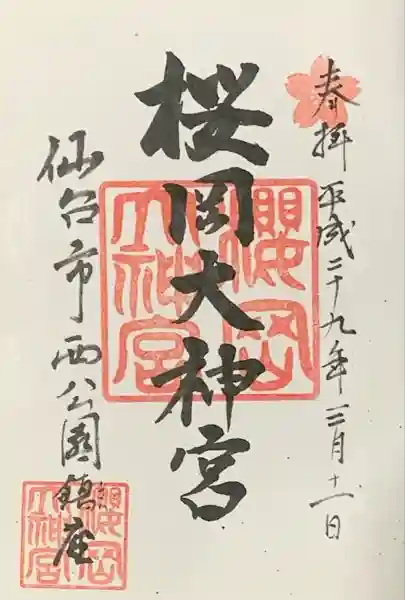 奉拝 平成二十九年三月十一日
桜岡大神宮
櫻岡大神宮
仙台市西公園鎮座
櫻岡大神宮